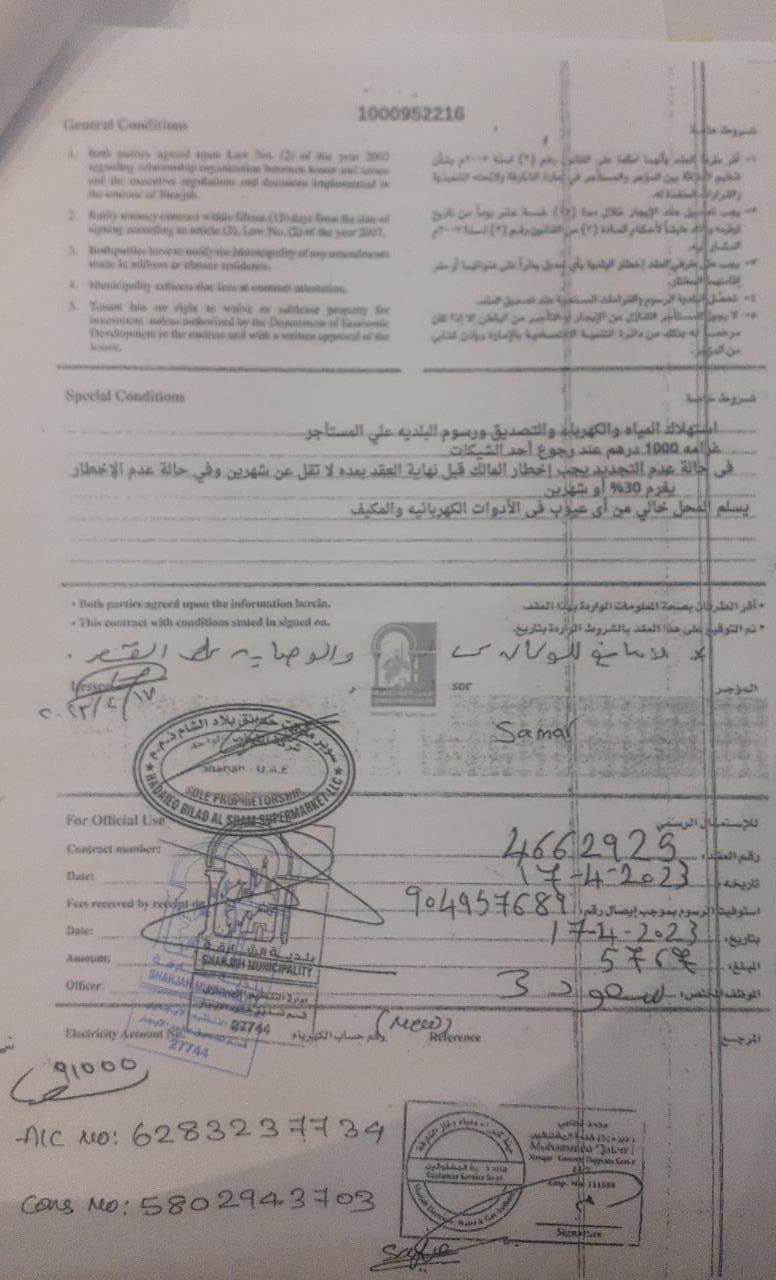 1000952216
General Conditions
شروط عامة
1. Both parties agreed upon Law No. (2) of the year 2007
regarding relationship organization between lessor and lessee
and the executive regulations and decisions implemented in
the emirate of Sharjah.
2. Ratify tenancy contract within fifteen (15) days from the date of
signing according to article (3), Law No. (2) of the year 2007.
3. Both parties have to notify the Municipality of any amendments
made in address or chosen residence.
4. Municipality collects due fees at contract attestation.
5. Tenant has no right to waive or sublease property for
investment, unless authorized by the Department of Economic
Development in the emirate and with a written approval of the
lessor.
١- أقر طرفا العقد بأنهما اطلعا على القانون رقم (٢) لسنة ٢٠٠٧م بشأن
تنظيم العلاقة بين المؤجر والمستأجر في إمارة الشارقة ولائحته التنفيذية
والقرارات المنفذة له.
٢- يجب تصديق عقد الإيجار خلال مدة (١٥) خمسة عشر يوماً من تاريخ
توقيعه وذلك طبقاً لأحكام المادة (٣) من القانون رقم (٢) لسنة ٢٠٠٧م
المشار إليه.
٣- يجب على طرفي العقد إخطار البلدية بأي تعديل يطرأ على عنوانهما أو مقر
إقامتهما المختار.
٤- تحصل البلدية الرسوم والغرامات المستحقة عند تصديق العقد.
٥- لا يجوز للمستأجر التنازل عن الإيجار أو التأجير من الباطن إلا إذا كان
مرخصاً له بذلك من دائرة التنمية الاقتصادية بالإمارة وبإذن كتابي
من المؤجر.
Special Conditions
شروط خاصة
استهلاك المياه والكهرباء والتصديق ورسوم البلديه علي المستأجر
غرامه 1000 درهم عند رجوع أحد الشيكات
فى حالة عدم التجديد يجب إخطار المالك قبل نهاية العقد بمده لا تقل عن شهرين وفي حالة عدم الإخطار
يغرم 30% أو شهرين
يسلم المحل خالي من أى عيوب فى الأدوات الكهربائيه والمكيف
• Both parties agreed upon the information herein.
• أقر الطرفان بصحة المعلومات الواردة بهذا العقد.
• This contract with conditions stated in signed on.
• تم التوقيع على هذا العقد بالشروط الواردة بتاريخ.
والوصايه على القصر
sor
المؤجر
Samar
سوبر ماركت حدائق بلاد الشام ذ.م.م
Sharjah - U.A.E
SOLE PROPRIETORSHIP
HADAIEQ BILAD AL SHAM SUPERMARKET-LLC
For Official Use
للإستعمال الرسمي
Contract number:
4662929
رقم العقد:
Date:
17-4-2023
تاريخه:
Fees received by receipt
904957689
استوفيت الرسوم بموجب إيصال رقم:
Date:
17-4-2023
بتاريخ:
Amount:
المبلغ:
Officer:
سعود 3
الموظف المختص:
بلدية الشارقة
SHARJAH MUNICIPALITY
27744
SHARJAH MUNICIPALITY
27744
Electricity Account No.
رقم حساب الكهرباء
(New)
Reference
المرجع
91000
A/C No: 6283237734
Cons No: 5802943703
Customer Service Dept.
Emp. No.
Signature